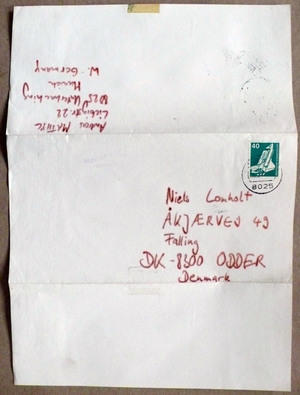 Andreas
Liebigstr. 22
8025 Unterhaching
Munich
W. Germany
40
8025
Niels Lomholt
ÅKJÆRVEJ 49
Falling
DK-8300 ODDER
Denmark